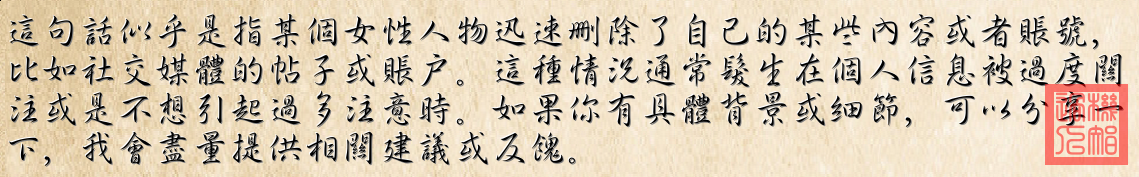 這句話似乎是指某個女性人物迅速刪除了自己的某些內容或者賬號，
比如社交媒體的帖子或賬户。這種情況通常髮生在個人信息被過度關
注或是不想引起過多注意時。如果你有具體背景或細節，可以分享一
下，我會盡量提供相關建議或反餽。